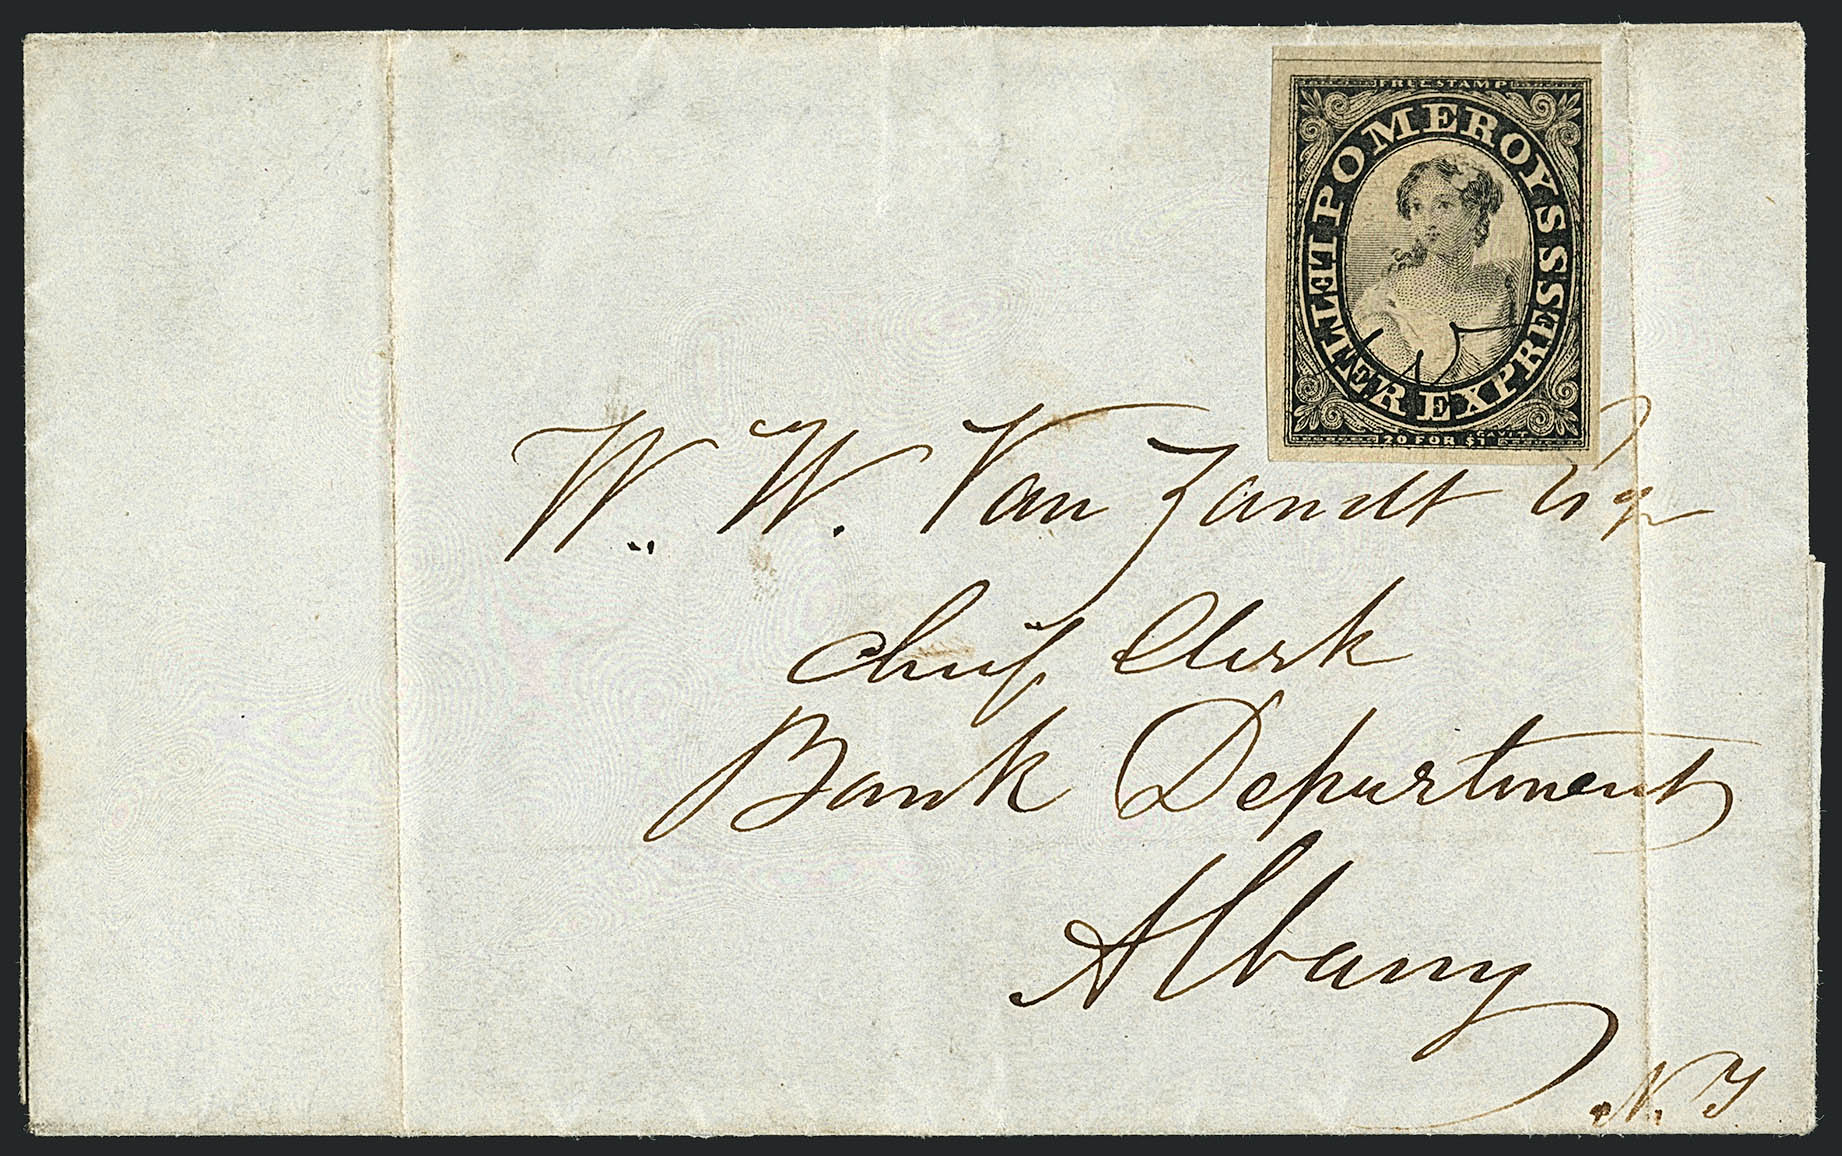 FREE STAMP
POMEROY'S LETTER EXPRESS
20 FOR $1
GAVIT
W. W. Van Zandt Esqr
Chief Clerk
Bank Department
Albany
N. Y